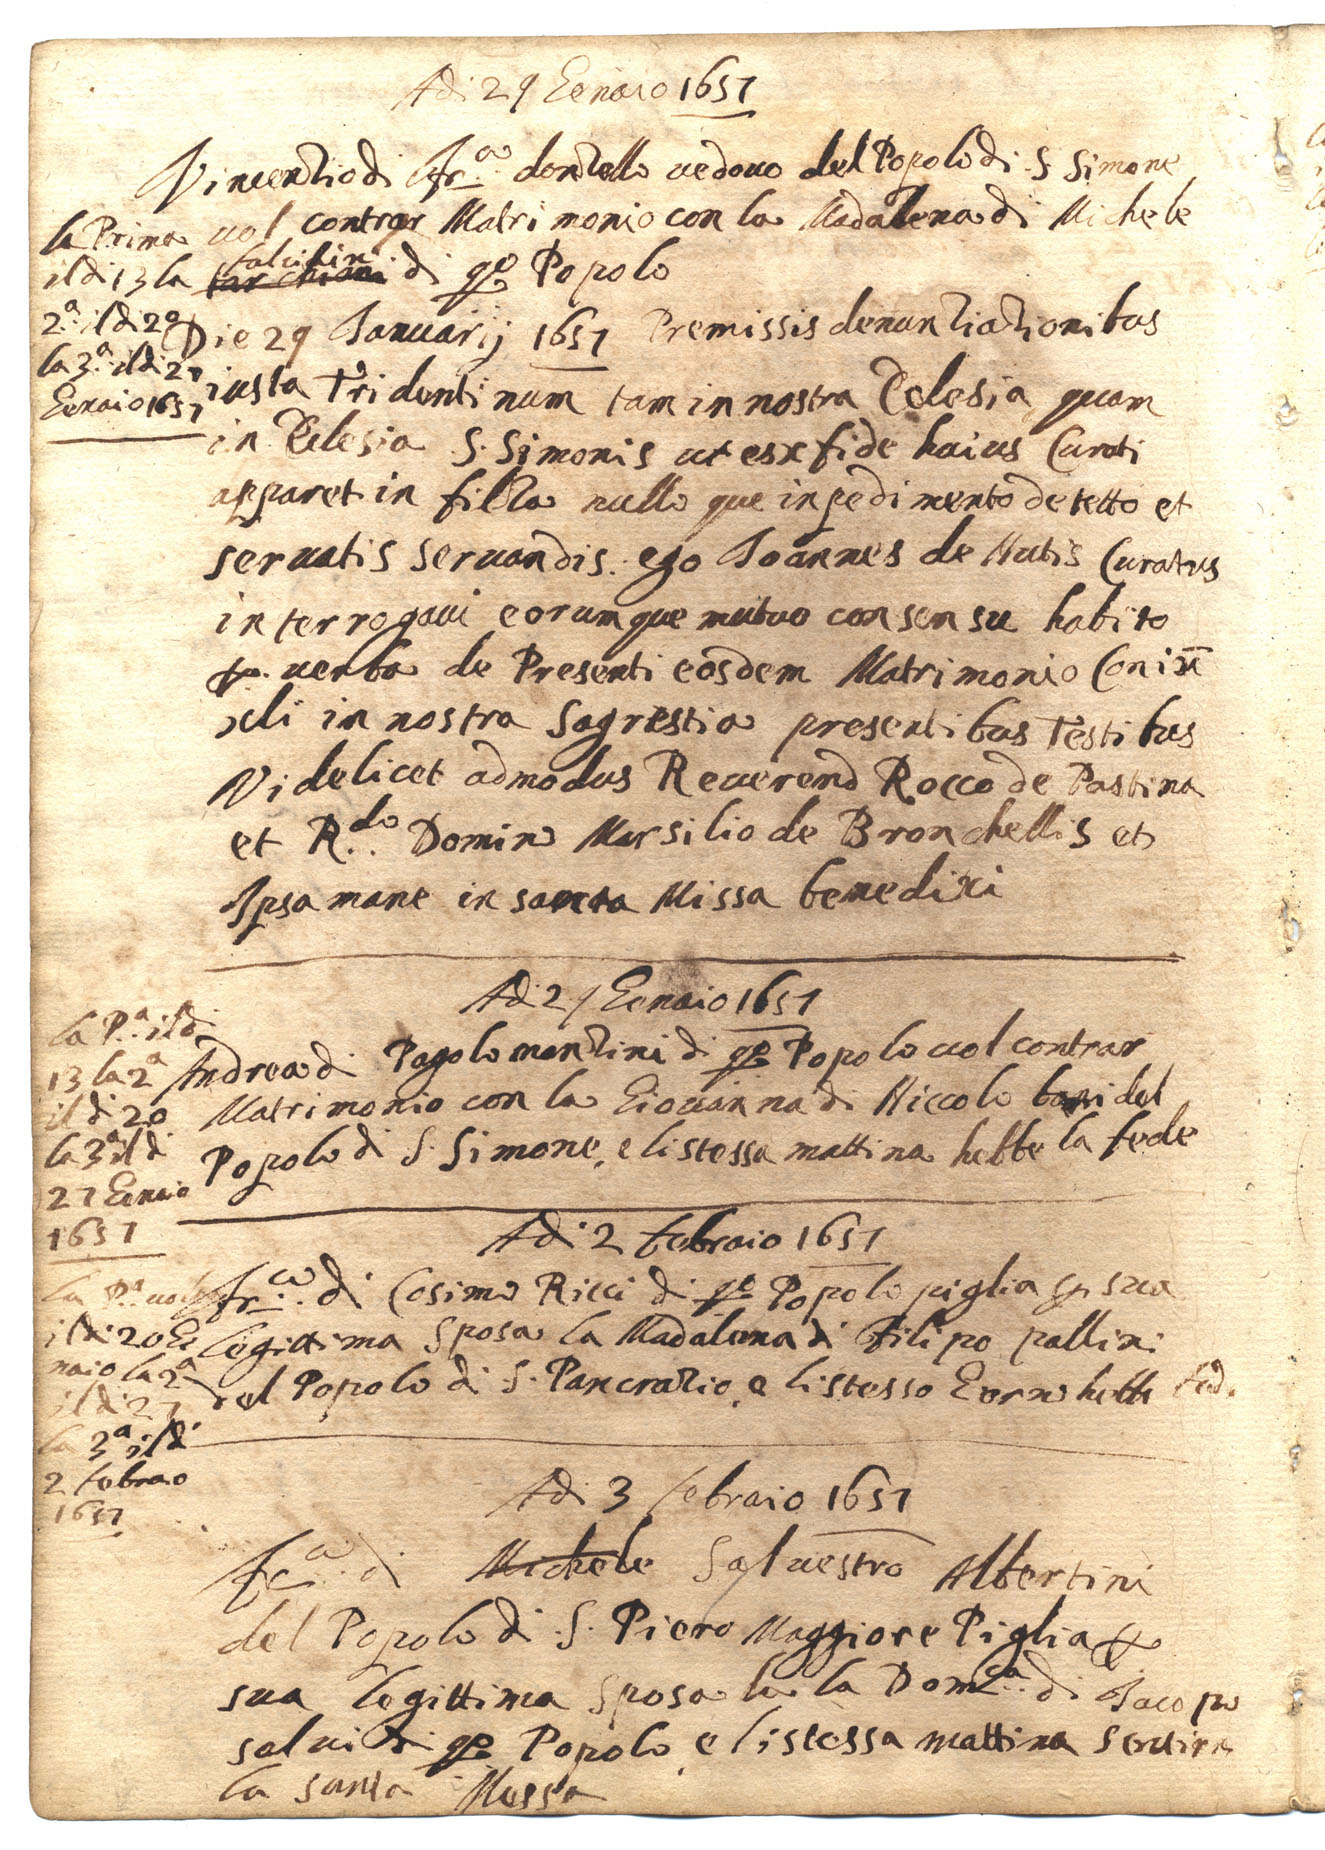 Adi 29 Genaio 1657
Vincentio di Fr.co donzello vedovo del Popolo di S Simone
vol contrar Matrimonio con la Madalena di Michele
di q.o Popolo
la Prima
il di 13 la
2.a il di 20
la 3.a il di 27
Genaio 1657
Die 29 Januarij 1657 Premissis denuntiationibus
iusta Tridentinum tam in nostra Eclesia quam
in Eclesia S. Simonis ut esx fide huius Curati
apparet in filza nullo que inpedimento detetto et
servatis servandis. ego Joannes de Mutis Curatus
interrogavi eorumque mutuo consensu habito
p. verba de Presenti eosdem Matrimonio Coniu
xi in nostra Sagrestia presentibus Testibus
Videlicet admodus Reverend Rocco de Pastina
et R.do Domino Marsilio de Bronchellis et
Ipsa mane in santa Missa benedixi
Adi 27 Genaio 1657
Andrea di Pagolo mantini di q.o Popolo vol contrar
Matrimonio con la Giovanna di Niccolo del
Popolo di S. Simone, e listessa mattina hebbe la fede
la P.a il di
13 la 2.a
il di 20
la 3.a il di
27 Genaio
1657
Adi 2 febraio 1657
Fr.co di Cosimo Ricci di q.o Popolo piglia p sua
legittima Sposa la Madalena di Filipo pallini
del Popolo di S. Pancratio, e listesso Gorno hebbe fed.
la P.a
il di 20 Ge
naio la 2.a
il di 27
la 3.a il di
2 febraio
1657
Adi 3 febraio 1657
Fr.co di Michele Salvestro Albertini
del Popolo di S. Piero Maggiore Piglia p
sua legittima Sposa la la Dom.ca di Jacopo
salvi di q.o Popolo, e listessa mattina
la santa Messa